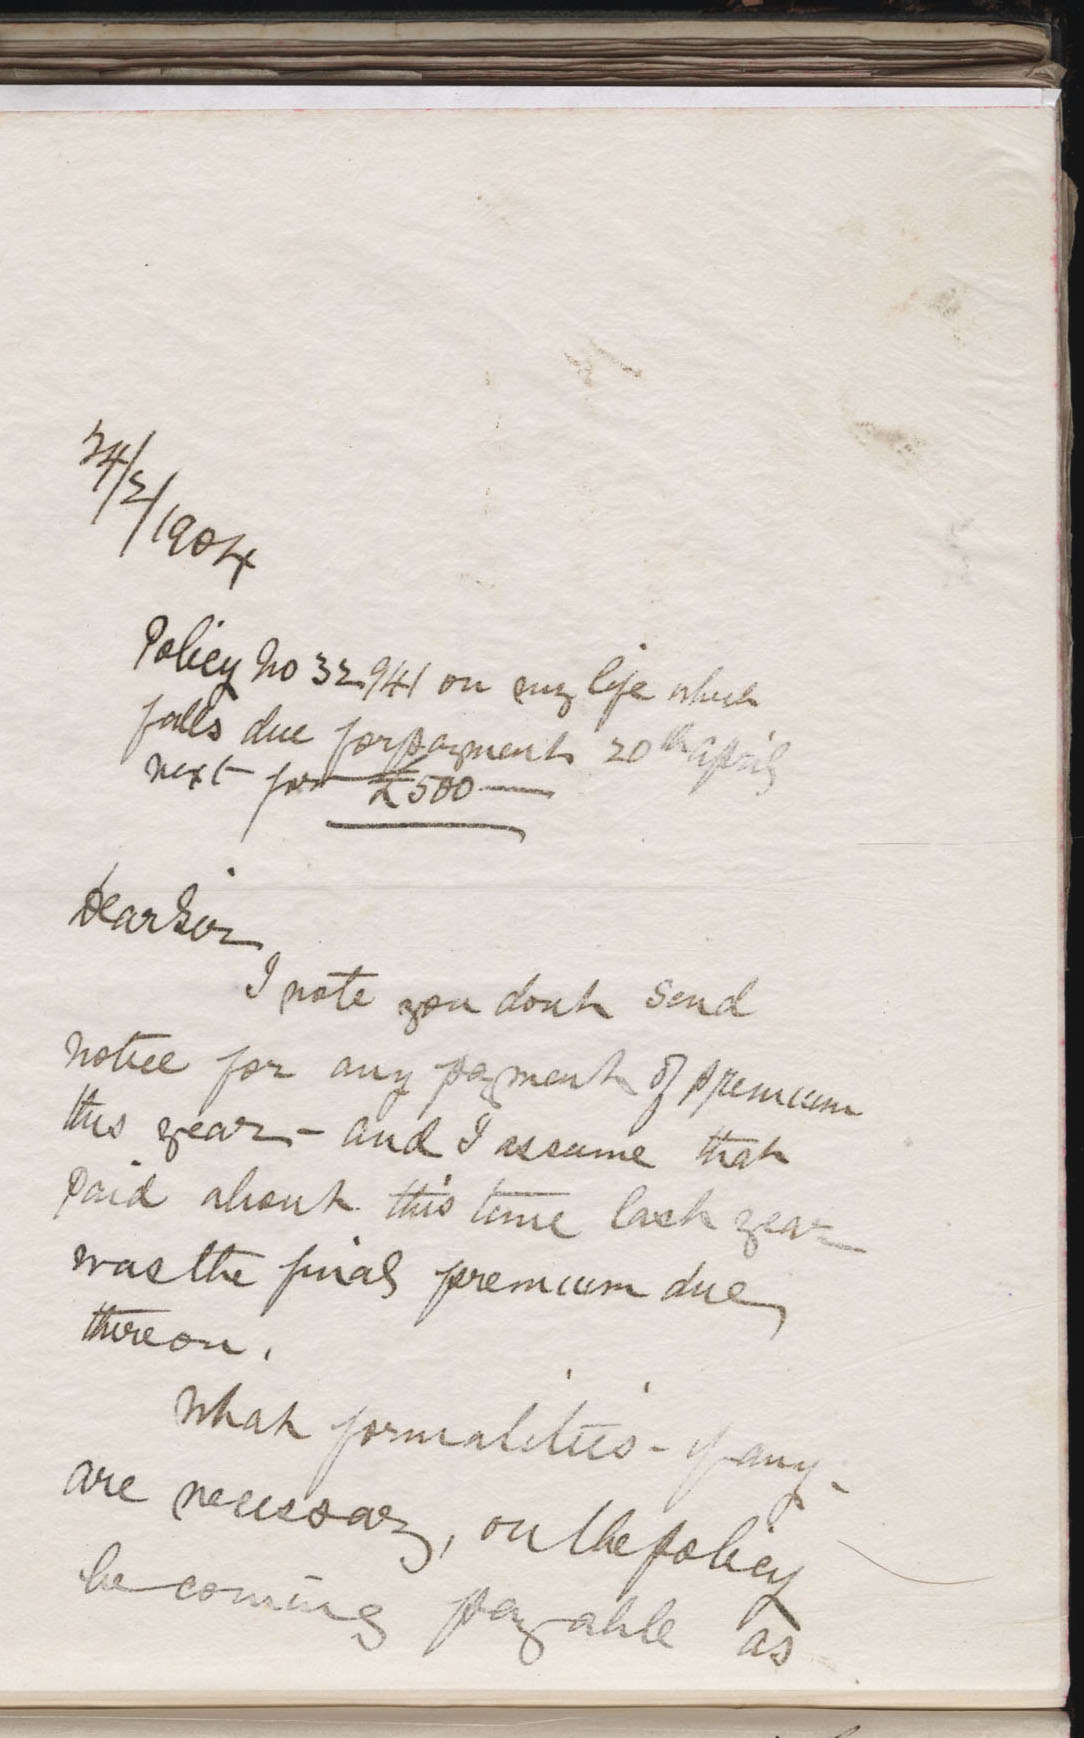 24/2/1904
Policy No 32941 on my life which
falls due for payment 20th April
next for £500
Dear Sir
I note you dont send
notice for any payment of premium
this year - and I assume that
paid about this time last year
was the final premium due
thereon.
What formalities - if any -
are necessary, on the policy
becoming payable as